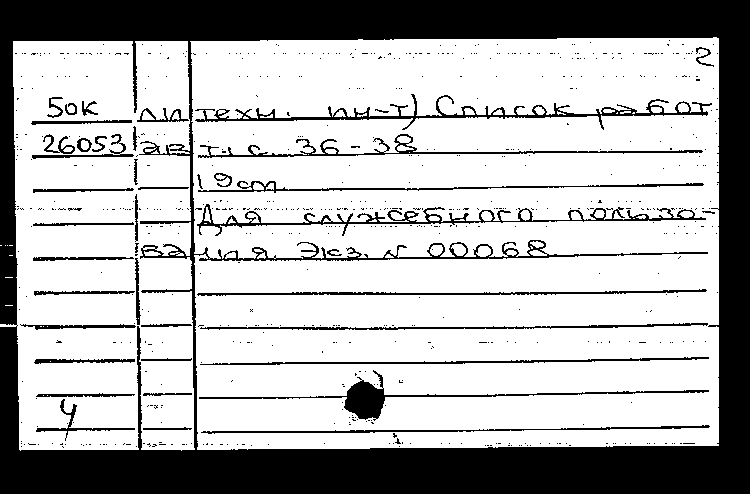 2
50К ли техн. ин-т) Список работ
26053 авт.: с. 36-38
19 cm.
Для служебного пользо-
вания. Экз. N 00068.
У